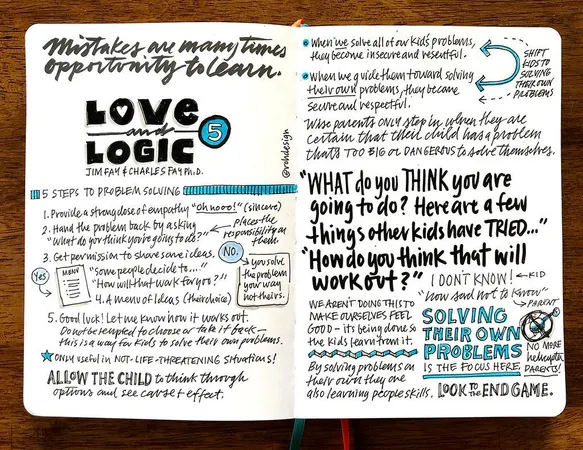 Mistakes are many times
opportunity to learn.
LOVE
and
LOGIC
5
JIM FAY & CHARLES FAY Ph.D.
@rohdesign
5 STEPS TO PROBLEM SOLVING
1. Provide a strong dose of empathy "Oh nooo!" (sincere)
2. Hand the problem back by asking
"What do you think you're going to do?"
places the
responsibility on
them.
3. Get permission to share some ideas.
NO.
you solve
the problem
your way
not theirs.
Yes
MENU
"Some people decide to..."
"How will that work for you?"
4. A menu of Ideas (their choice)
5. Good luck! Let me know how it works out.
Do not be tempted to choose or take it back—
this is a way for kids to solve their own problems.
ONLY useful in NOT-LIFE-THREATENING Situations!
ALLOW THE CHILD to think through
options and see cause & effect.
When we solve all of our kid's problems,
they become insecure and resentful.
When we guide them toward solving
their own problems, they become
secure and respectful.
SHIFT
KIDS TO
SOLVING
THEIR OWN
PROBLEMS
Wise parents only step in when they are
certain that their child has a problem
that's TOO BIG or DANGEROUS to solve themselves.
"WHAT do you THINK you are
going to do? Here are a few
things other kids have TRIED..."
"How do you think that will
work out?"
I DON'T KNOW!
KID
"How sad not to know"
PARENT
WE AREN'T DOING THIS TO
MAKE OURSELVES FEEL
GOOD – it's being done so
the kids learn from it.
By solving problems on
their own they are
also learning people skills.
SOLVING
THEIR OWN
PROBLEMS
IS THE FOCUS HERE
NO MORE
helicopter
PARENTS!
LOOK TO THE END GAME.